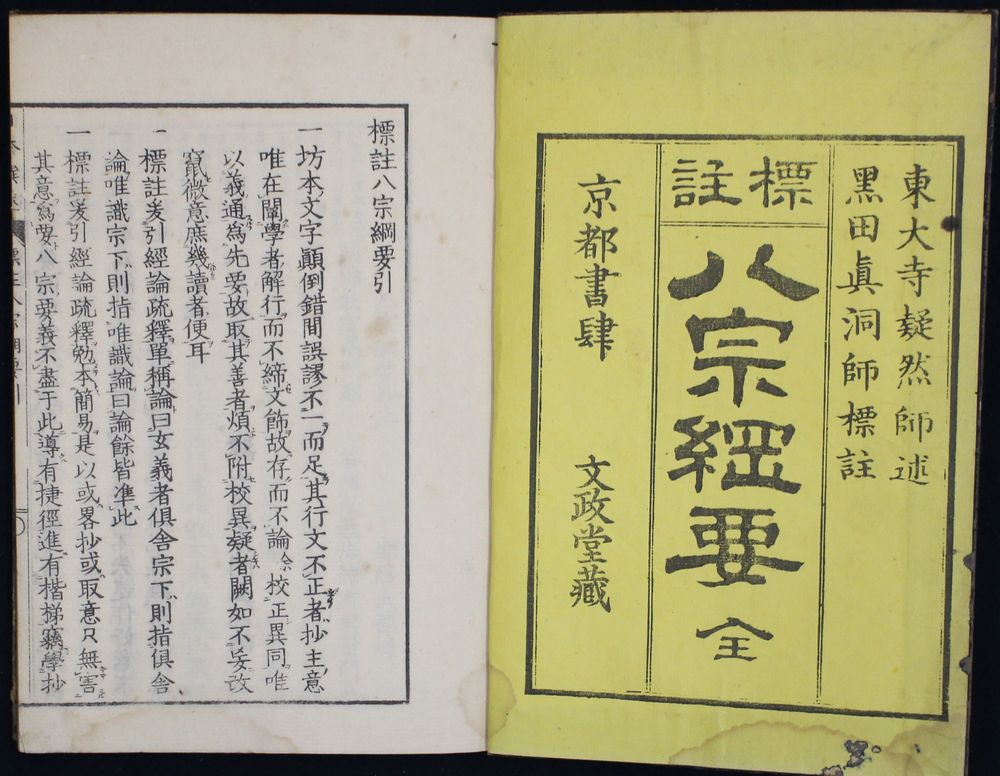 東大寺凝然師述
黑田眞洞師標註
標註
八宗綱要 全
京都書肆 文政堂藏
標註八宗綱要引
一坊本文字顛倒錯間誤謬不一而足其行文不正者抄主意
唯在闡學者解行而不締文飾故存而不論校正異同唯
以義通爲先要故取其善者煩不附校異疑者闕如不妄改
竄微意庶幾讀者便耳
一標註爰引經論疏釋單稱論曰玄義者俱舍宗下則指俱舍
論唯識宗下則指唯識論曰論餘皆準此
一標註爰引經論疏釋勉本簡易是以或畧抄或取意只無害
其意爲要八宗要義不盡于此導有捷徑進有楷梯竊學抄